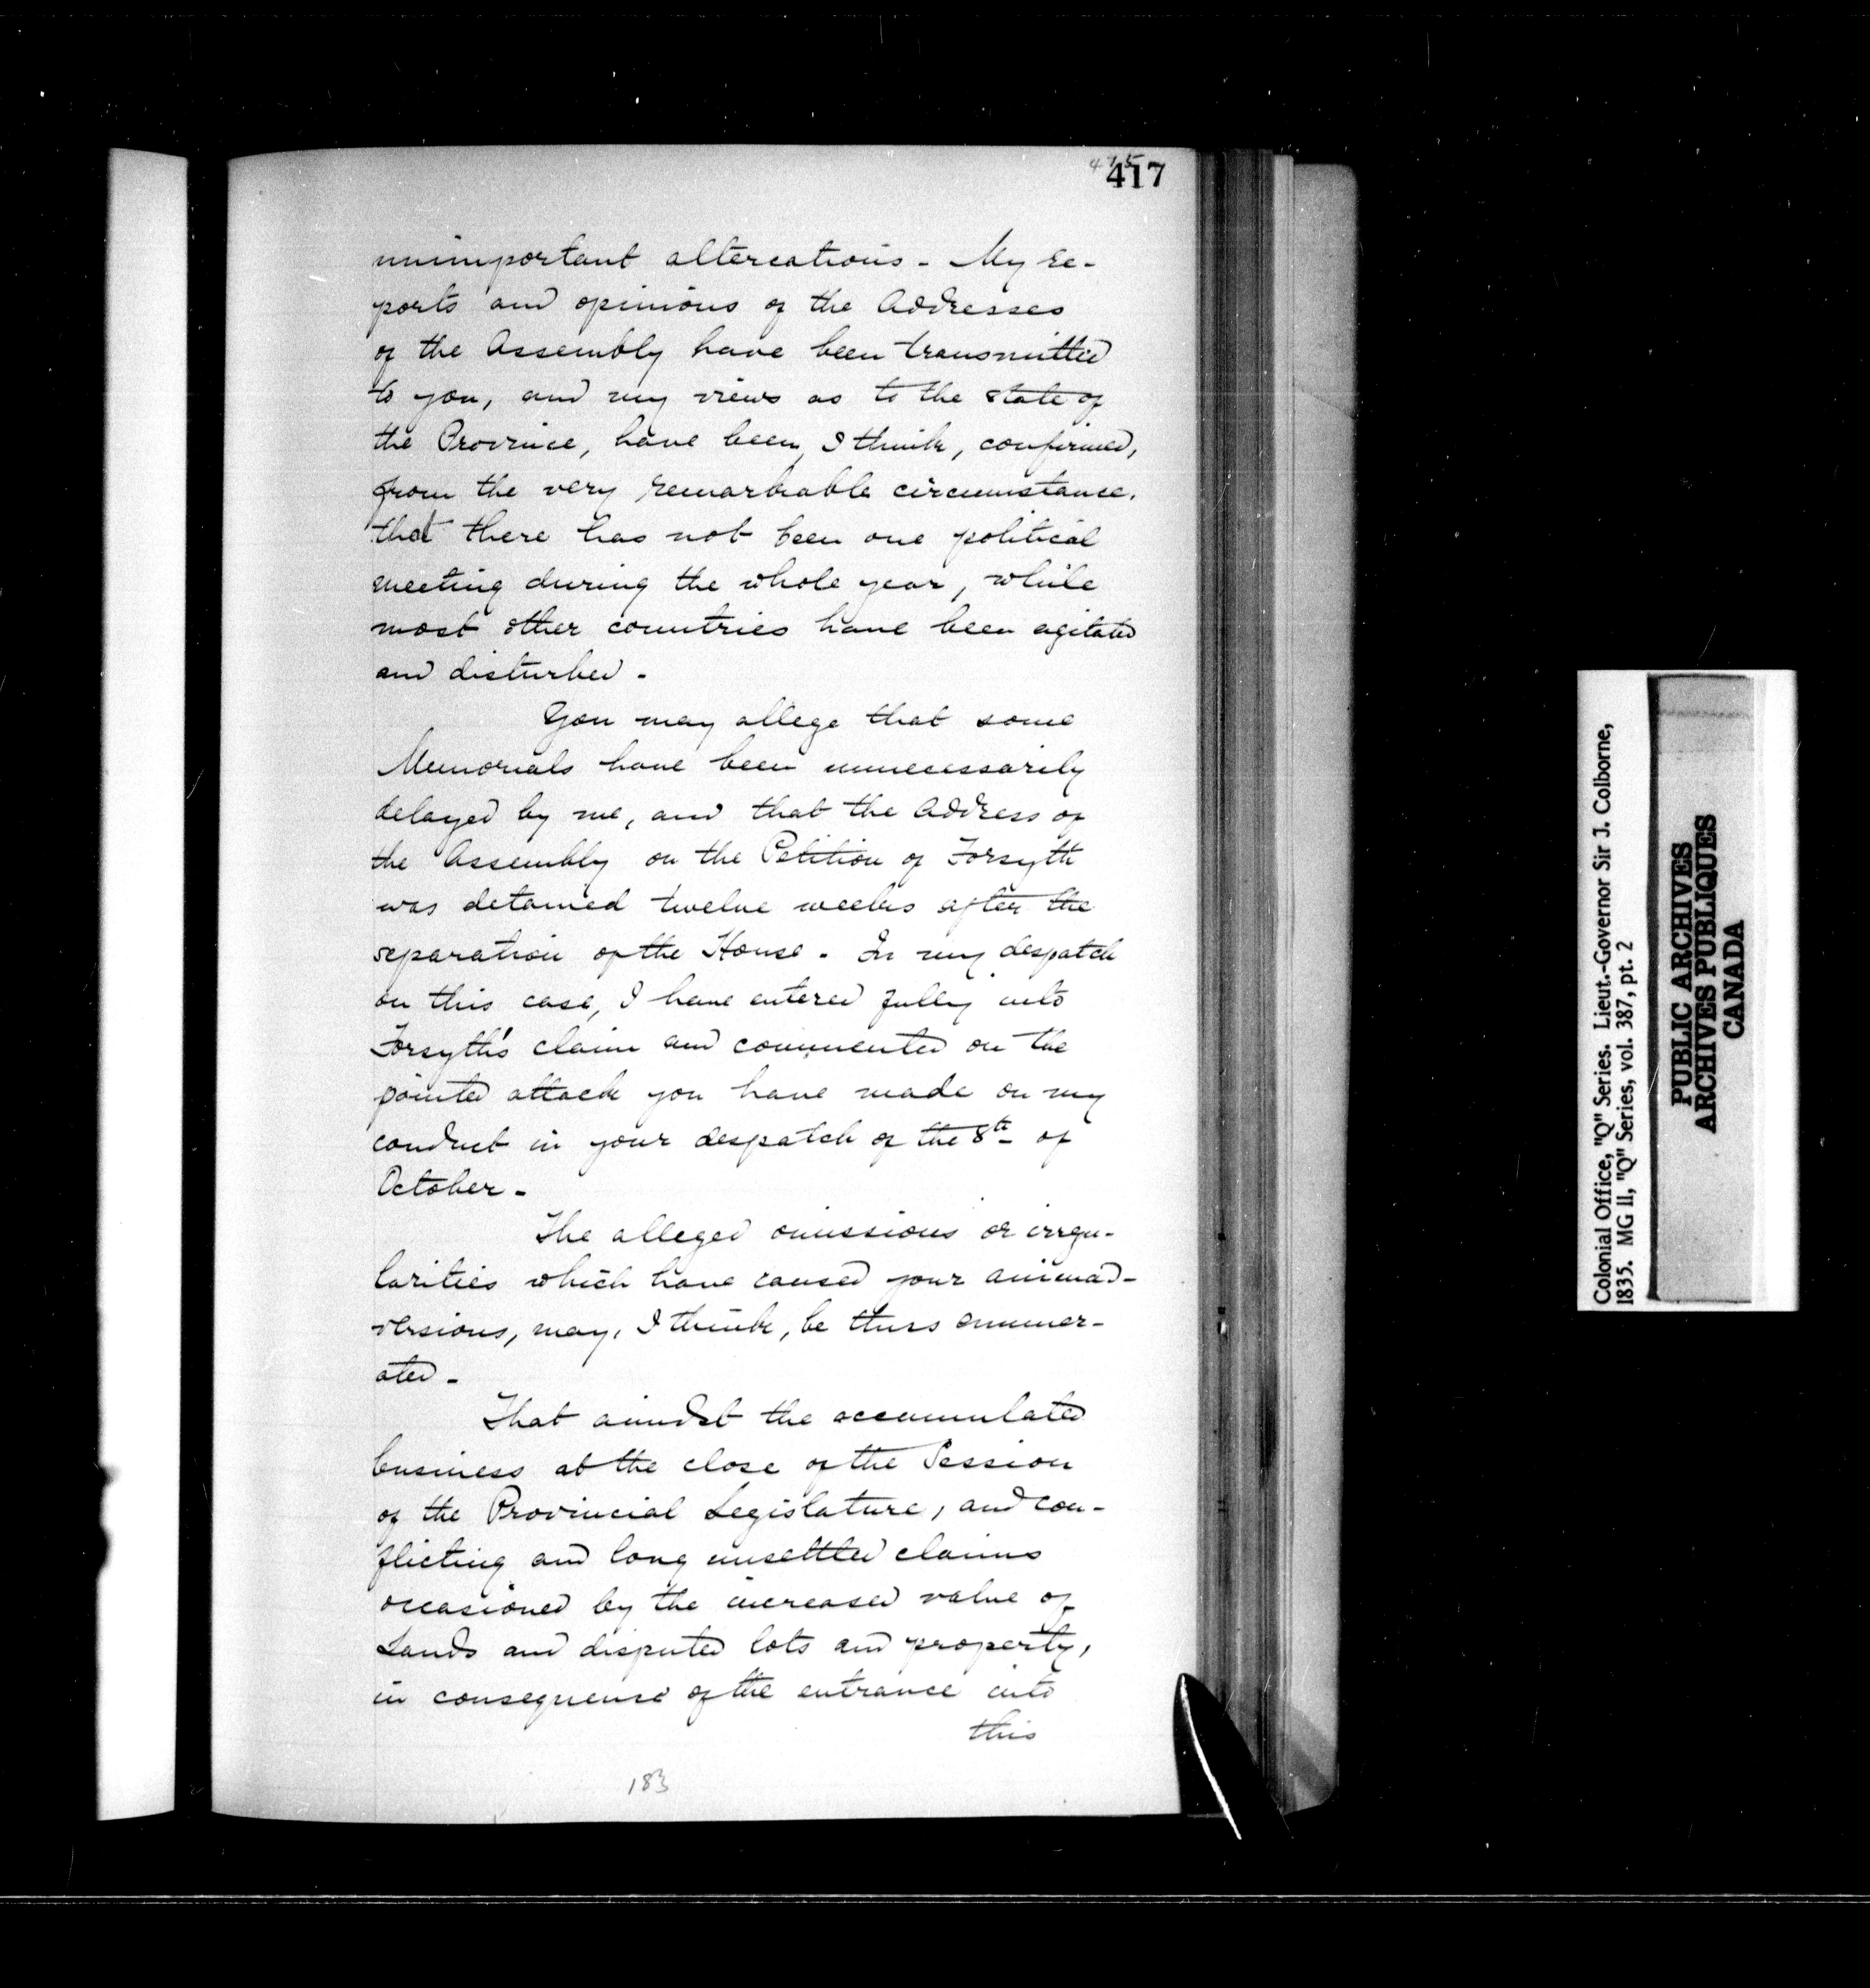 475
417
unimportant altercations - My re-
ports and opinions of the Addresses
of the Assembly have been transmitted
to you, and my views as to the state of
the Province, have been, I think, confirmed,
from the very remarkable circumstance,
that there has not been one political
meeting during the whole year, while
most other countries have been agitated
and disturbed -
You may allege that some
Memorials have been unnecessarily
delayed by me, and that the Address of
the Assembly on the Petition of Forsyth
was detained twelve weeks after the
separation of the House - In my despatch
on this case, I have entered fully into
Forsyth's claim and commented on the
pointed attack you have made on my
conduct in your despatch of the 8th of
October -
The alleged omissions or irregu-
larities which have caused your animad-
versions, may, I think, be thus enumer-
ated -
That amidst the accumulated
business at the close of the Session
of the Provincial Legislature, and con-
flicting and long unsettled claims
occasioned by the increased value of
Lands and disputed lots and property,
in consequence of the entrance into
this
183
Colonial Office, "Q" Series. Lieut.-Governor Sir J. Colborne,
1835. MG 11, "Q" Series, vol. 387, pt. 2
PUBLIC ARCHIVES
ARCHIVES PUBLIQUES
CANADA